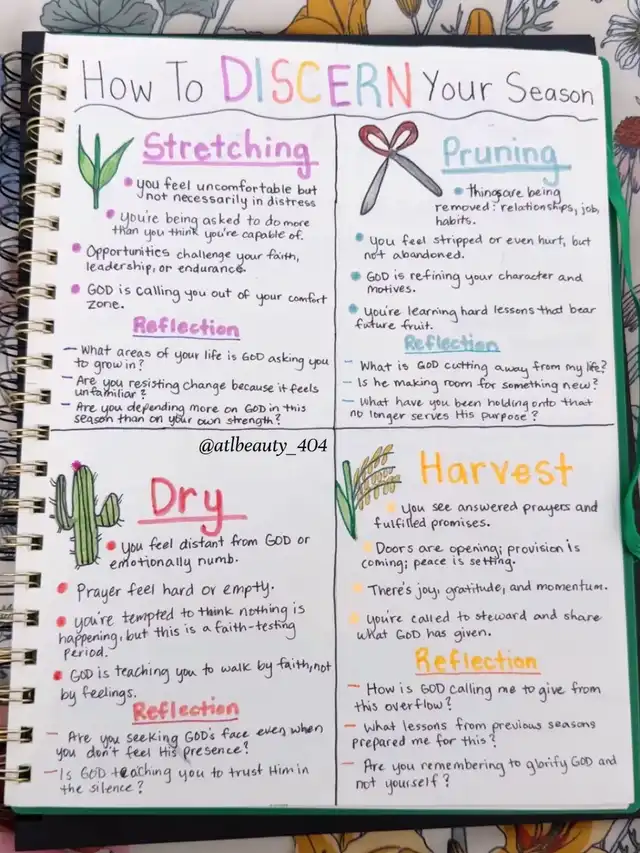 How To DISCERN Your Season
Stretching
• you feel uncomfortable but
not necessarily in distress
• you're being asked to do more
than you think you're capable of.
• Opportunities challenge your faith,
leadership, or endurance.
• GOD is calling you out of your comfort
zone.
Reflection
— What areas of your life is GOD asking you
to grow in?
— Are you resisting change because it feels
unfamiliar?
— Are you depending more on GOD in this
season than on your own strength?
Pruning
• Things are being
removed: relationships, job,
habits.
• you feel stripped or even hurt, but
not abandoned.
• GOD is refining your character and
motives.
• you're learning hard lessons that bear
future fruit.
Reflection
— What is GOD cutting away from my life?
— Is he making room for something new?
— What have you been holding onto that
no longer serves His purpose?
@atlbeauty_404
Dry
• you feel distant from GOD or
emotionally numb.
• Prayer feel hard or empty.
• you're tempted to think nothing is
happening, but this is a faith-testing
period.
• GOD is teaching you to walk by faith, not
by feelings.
Reflection
— Are you seeking GOD's face even when
you don't feel His presence?
— Is GOD teaching you to trust Him in
the silence?
Harvest
• you see answered prayers and
fulfilled promises.
• Doors are opening; provision is
coming; peace is setting.
• There's joy, gratitude, and momentum.
• you're called to steward and share
what GOD has given.
Reflection
— How is GOD calling me to give from
this overflow?
— What lessons from previous seasons
prepared me for this?
— Are you remembering to glorify GOD and
not yourself?